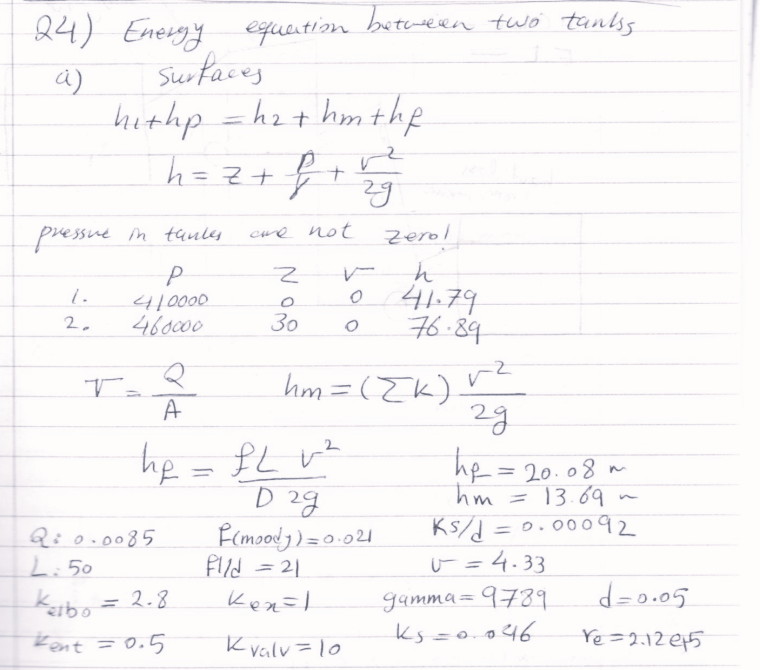 Q4) Energy equation between two tanks
a) surfaces
h1+hp = h2 + hm + hf
h = z + p/γ + v²/2g
pressure in tanks are not zero!
P Z V h
1. 410000 0 0 41.79
2. 460000 30 0 76.89
V = Q/A hm = (ΣK) v²/2g
hf = fL v²/D 2g
hf = 20.08 m
hm = 13.69 m
Q: 0.0085 f(moody) = 0.021 Ks/d = 0.00092
L: 50 fl/d = 21 v = 4.33
Kelbo = 2.8 Kex = 1 gamma = 9789 d = 0.05
Kent = 0.5 Kvalv = 10 Ks = 0.046 re = 2.12e+5